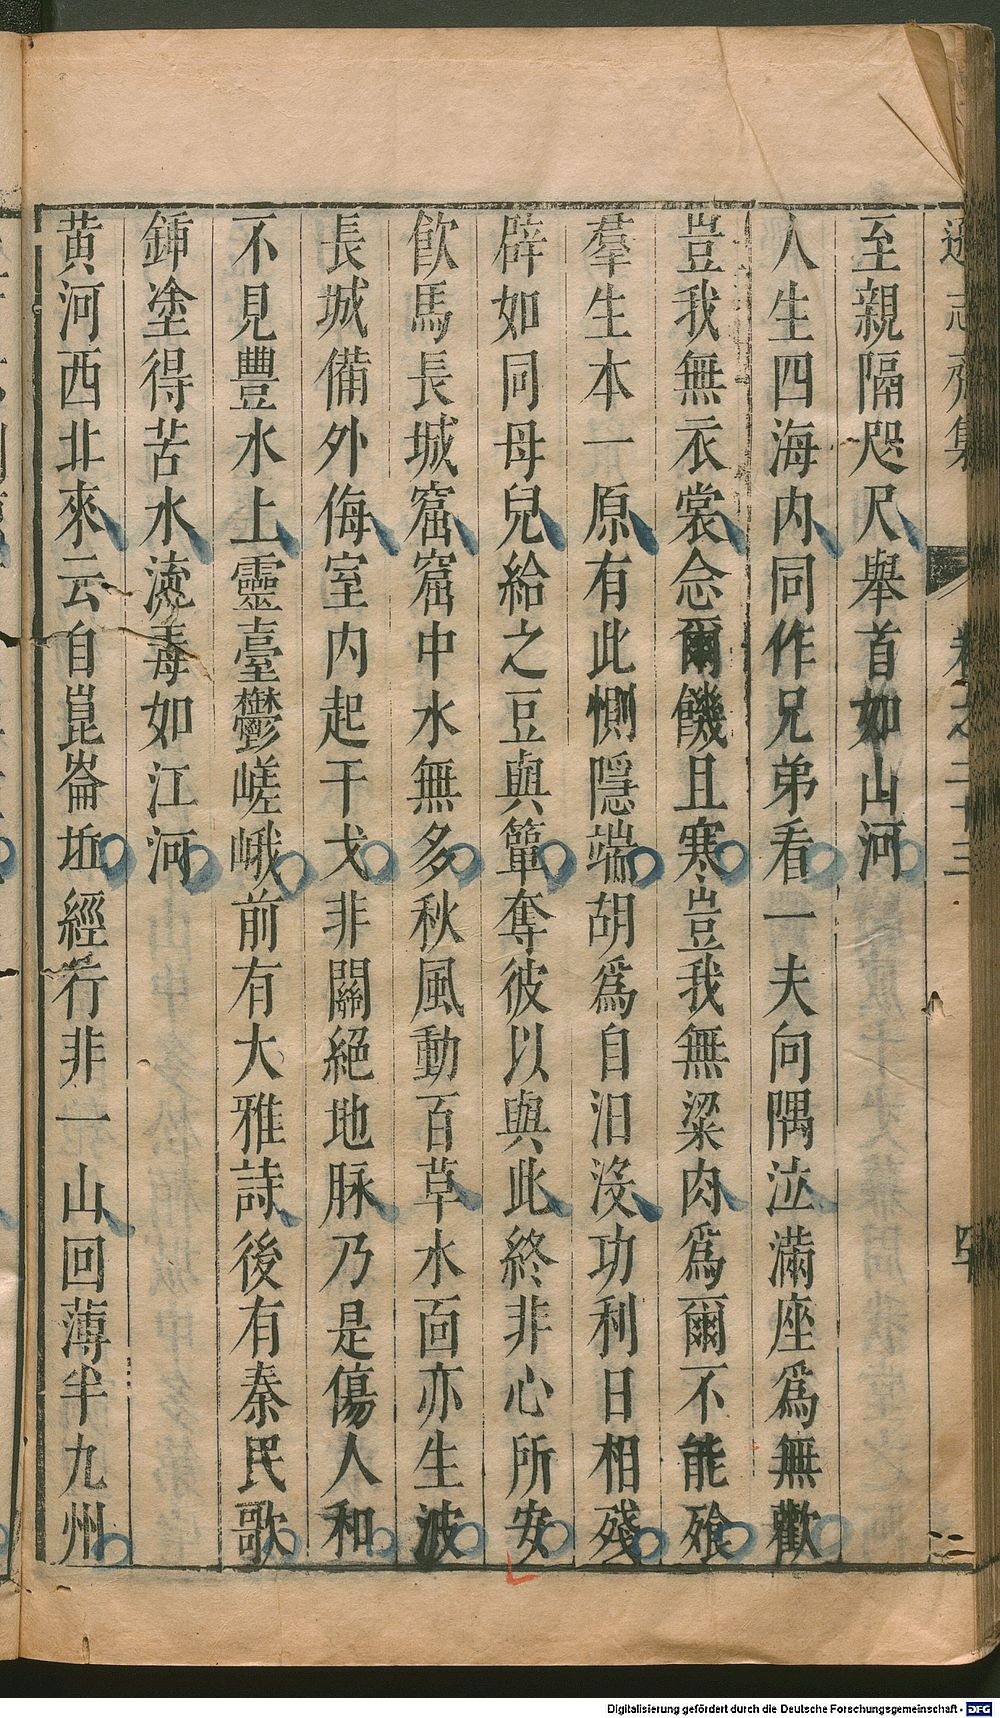 遜志齋集 卷之二十三
至親隔咫尺舉首如山河
人生四海内同作兄弟看一夫向隅泣滿座爲無歡
豈我無衣裳念爾饑且寒豈我無粱肉爲爾不能飱
羣生本一原有此惻隱端胡爲自汨沒功利日相殘
辟如同母兒給之豆與簞奪彼以與此終非心所安
飮馬長城窟窟中水無多秋風動百草水面亦生波
長城備外侮室内起干戈非關絕地脉乃是傷人和
不見豐水上靈臺鬱嵯峨前有大雅詩後有秦民歌
鍤塗得苦水流毒如江河
黃河西北來云自崑崙坵經行非一山回薄半九州
Digitalisierung gefördert durch die Deutsche Forschungsgemeinschaft - DFG